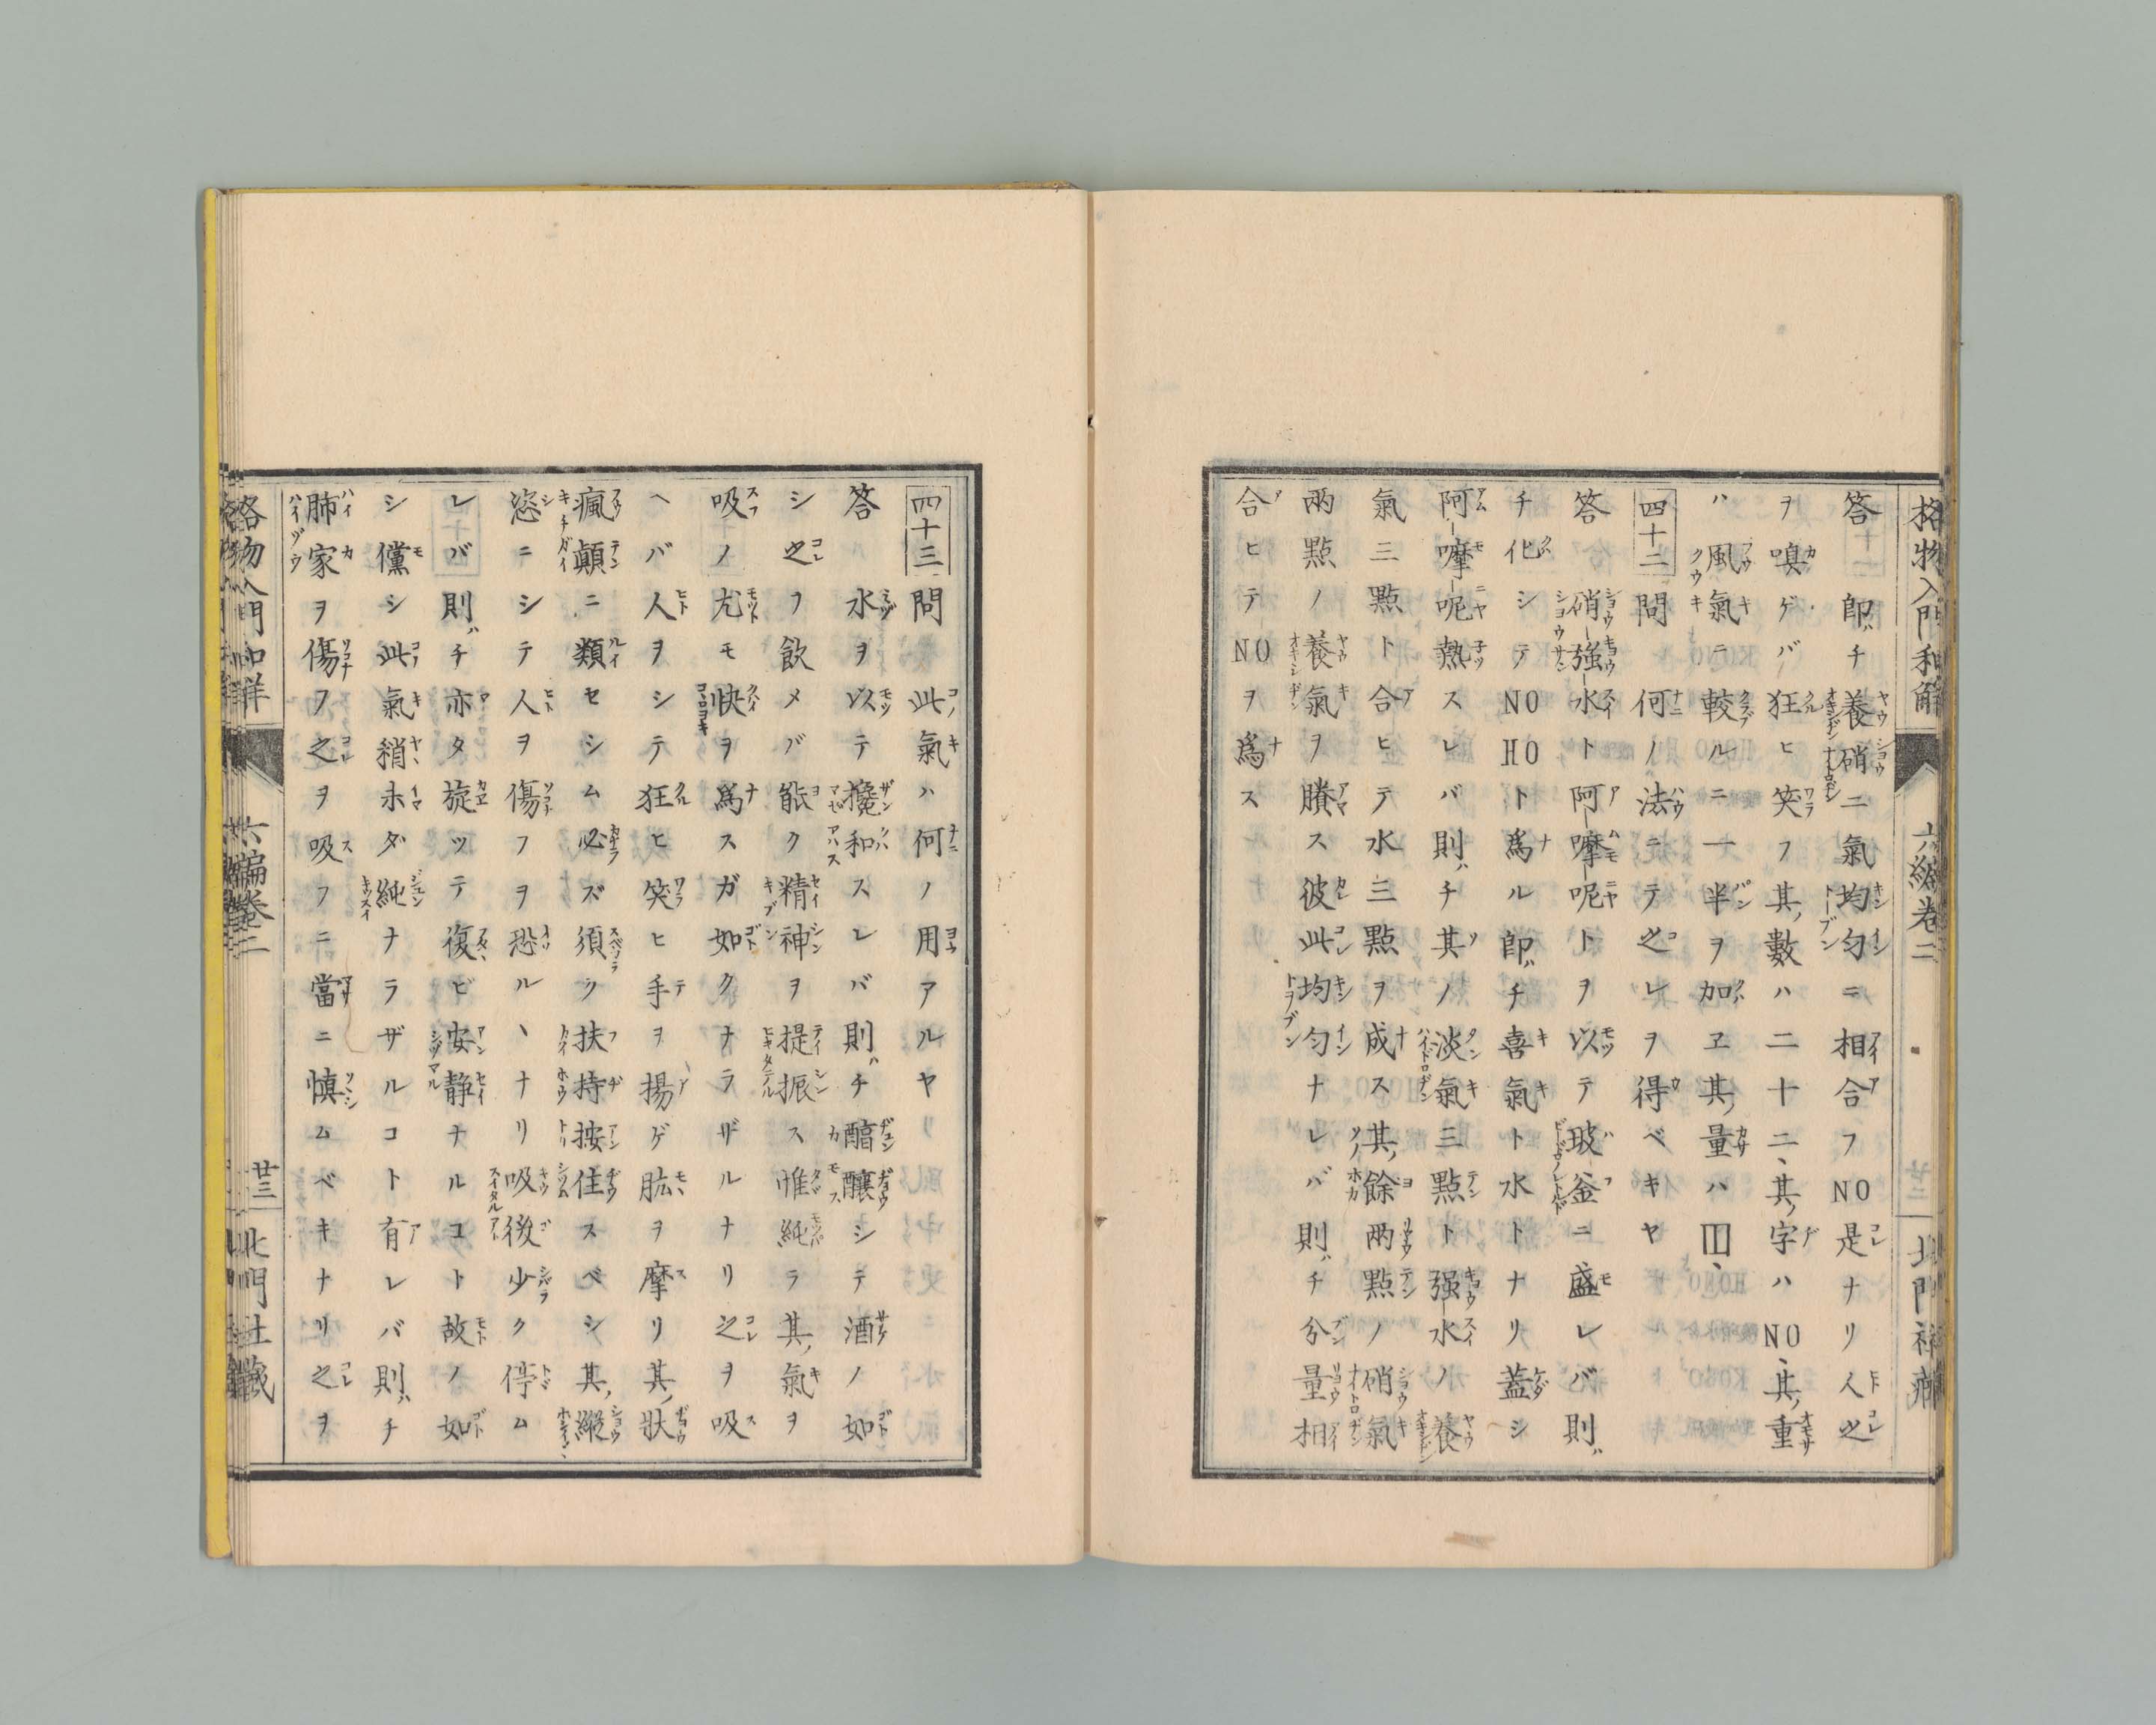 格物入門和解 六編卷二 廿二 北門社藏
答 即チ養硝二氣均匀ニ相合フNO是ナリ人之
ヲ嗅ゲバ狂ヒ笑フ其數ハ二十二、其字ハNO、其重
ハ風氣ニ較ルニ一半ヲ加ヱ其量ハ
四十二 問 何ノ法ニテ之レヲ得ベキヤ
答 硝強水ト阿摩呢トヲ以テ玻釜ニ盛レバ則
チ化シテNOHOト爲ル即チ喜氣ト水トナリ蓋シ
阿嚤呢熱スレバ則チ其ノ淡氣三點ト强水ノ養
氣三點ト合ヒテ水三點ヲ成ス其餘兩點ノ硝氣
兩點ノ養氣ヲ賸ス彼此均匀ナレバ則チ分量相
合ヒテNOヲ爲ス
四十三 問 此氣ハ何ノ用アルヤ
答 水ヲ以テ攙和スレバ則チ醞釀シテ酒ノ如
シ之フ飮メバ能ク精神ヲ提振ス惟純ラ其氣ヲ
吸ノ尤モ快ヲ爲スガ如クナラザルナリ之ヲ吸
ヘバ人ヲシテ狂ヒ笑ヒ手ヲ揚ゲ肱ヲ摩リ其狀
瘋顚ニ類セシム必ズ須ク扶持按住スベシ其縱
恣ニシテ人ヲ傷フヲ恐ルヽナリ吸後少ク停ム
レバ則チ亦タ旋ッテ復ビ安静ナルコト故ノ如
シ儻シ此氣稍未ダ純ナラザルコト有レバ則チ
肺家ヲ傷フ之ヲ吸フニ當ニ慎ムベキナリ之ヲ
格物入門和解 六編卷二 廿三 北門社藏